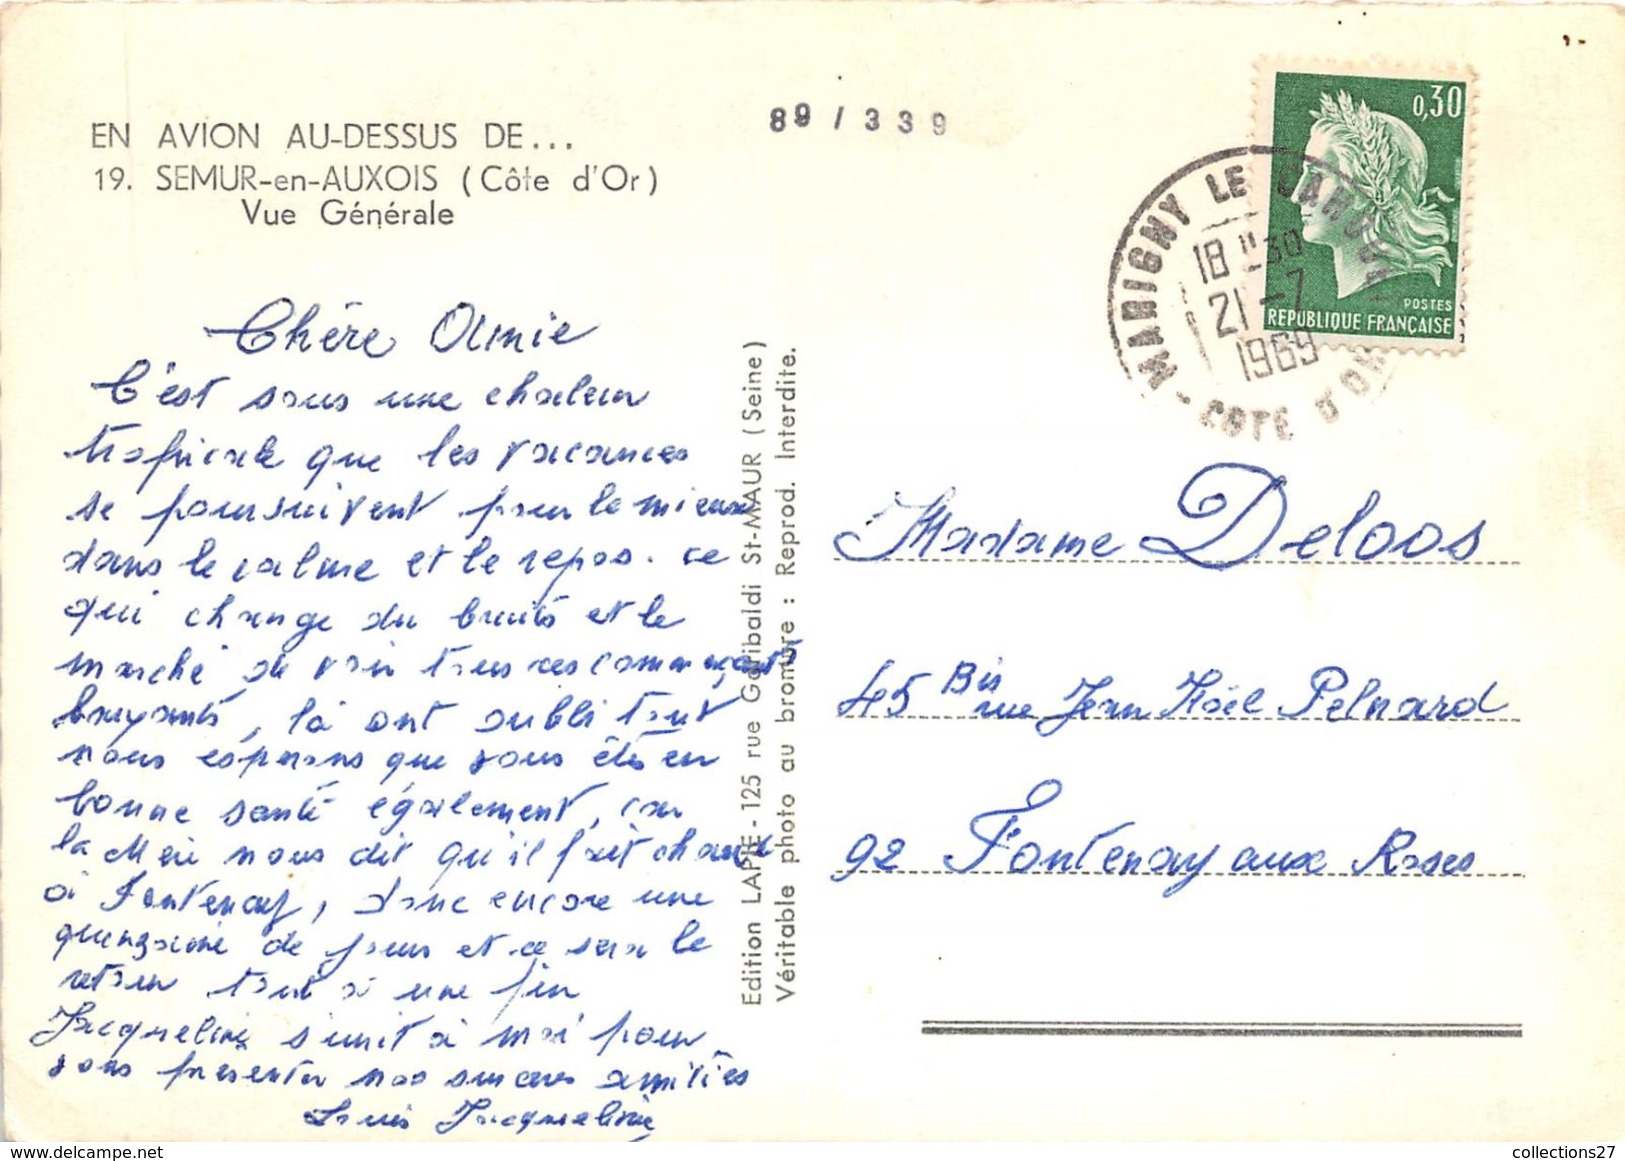 EN AVION AU-DESSUS DE...
19. SEMUR-en-AUXOIS (Côte d'Or)
Vue Générale
89/339
0,30
POSTES
REPUBLIQUE FRANÇAISE
MARIGNY LE CAHOUET
18 H30
21 -7
1969
COTE D'OR
Chère Amie
C'est sous une chaleur
tropicale que les vacances
se poursuivent pour le mieux
dans le calme et le repos. ce
qui change du bruits et le
marché de voir tous ces commerçants
bruyants, là ont oubli tout
nous espérons que vous êtes en
bonne santé également, car
la Mère nous dit qu'il fait chaud
à Fontenay, donc encore une
quinzaine de jours et ce sera le
retour tout à une fin
Jacqueline s'unit à moi pour
vous présenter nos sincères amitiés
Louis Jacqueline
Edition LAPIE - 125 rue Garibaldi St-MAUR (Seine)
Véritable photo au bromure : Reprod. Interdite.
Madame Deloos
45 Bis rue Jean Noël Pelnard
92 Fontenay aux Roses
collections27